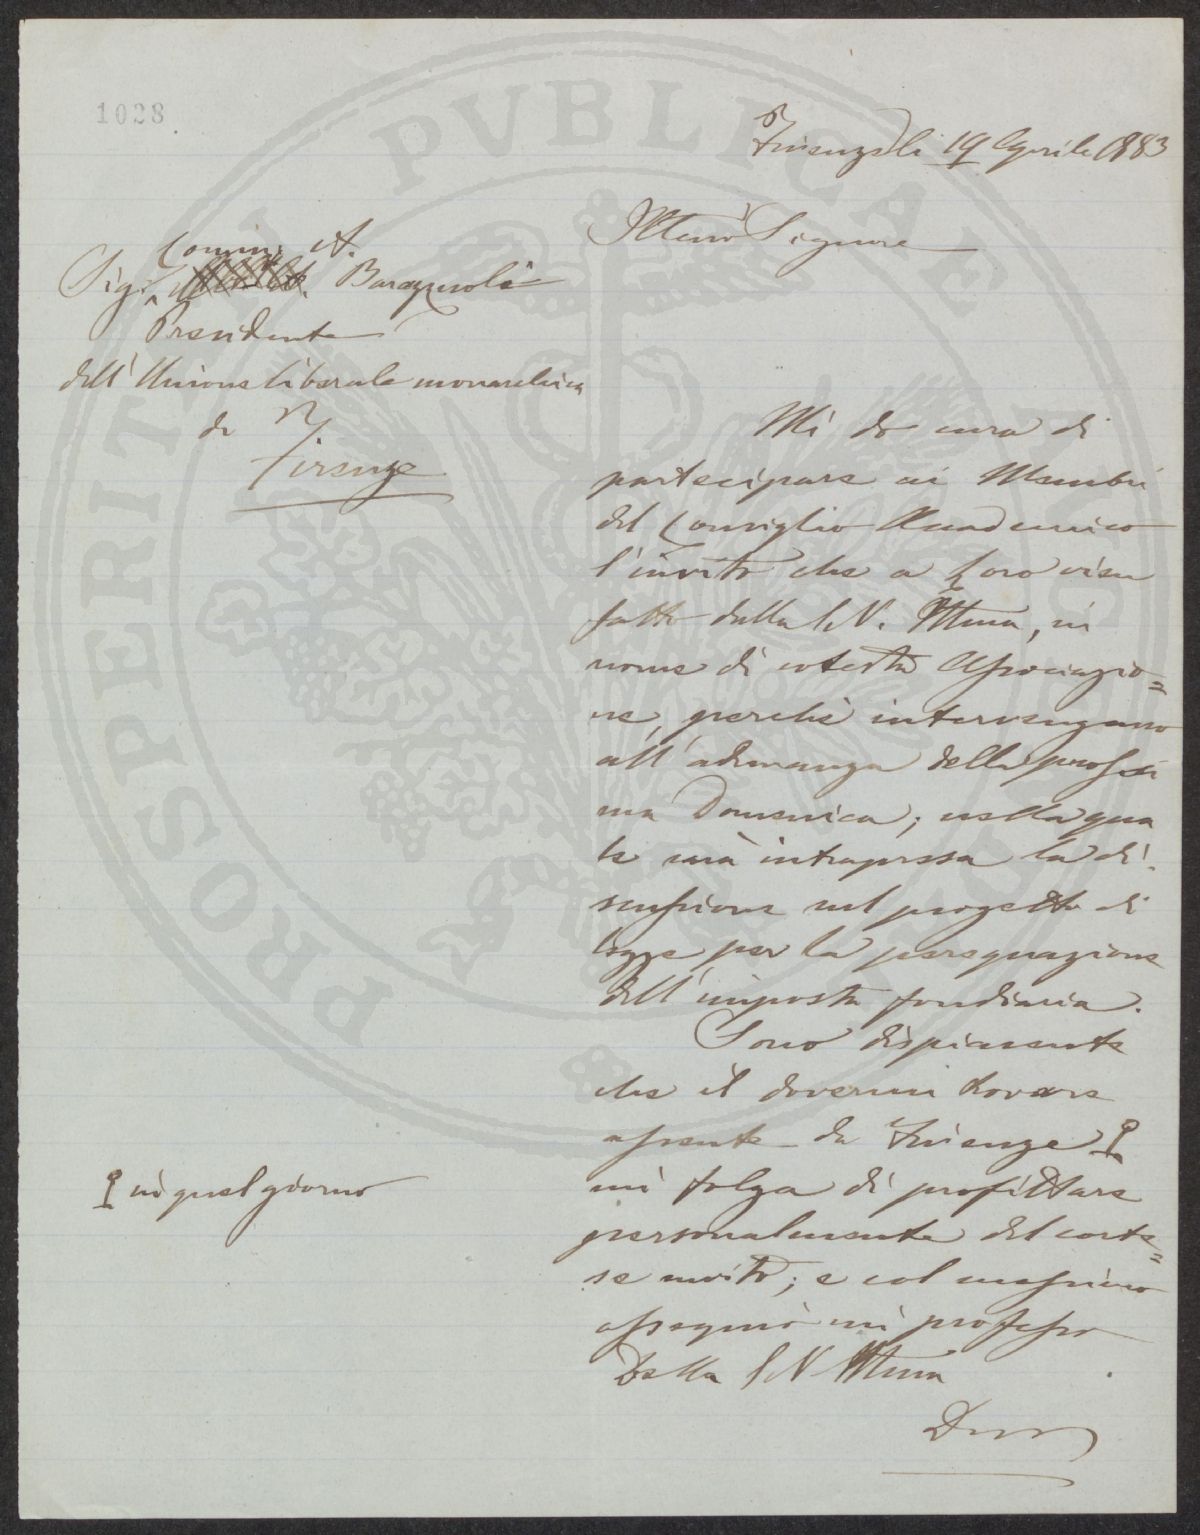 1028
Firenze li 19 Aprile 1883
Illmo Signore
Comm. A.
Sigr. Baragnoli
Presidente
dell' Unione liberale monarchica
di
Firenze
Mi do cura di
partecipare ai Membri
del Consiglio Accademico
l'invito che a Loro vien
fatto dalla S. V. Illma, in
nome di cotesta Associazio=
ne perchè intervengano
all'adunanza della prossi
ma Domenica; nella qua
le sarà intrapresa la di.
scussione sul progetto di
legge per la perequazione
dell'imposta fondiaria.
Sono dispiacente
che il dovermi trovare
assente da Firenze
in quel giorno
mi tolga di profittare
personalmente del corte=
se invito; e col massimo
ossequio mi professo
Della S V Illma
PROSPERITATI PVBLICAE